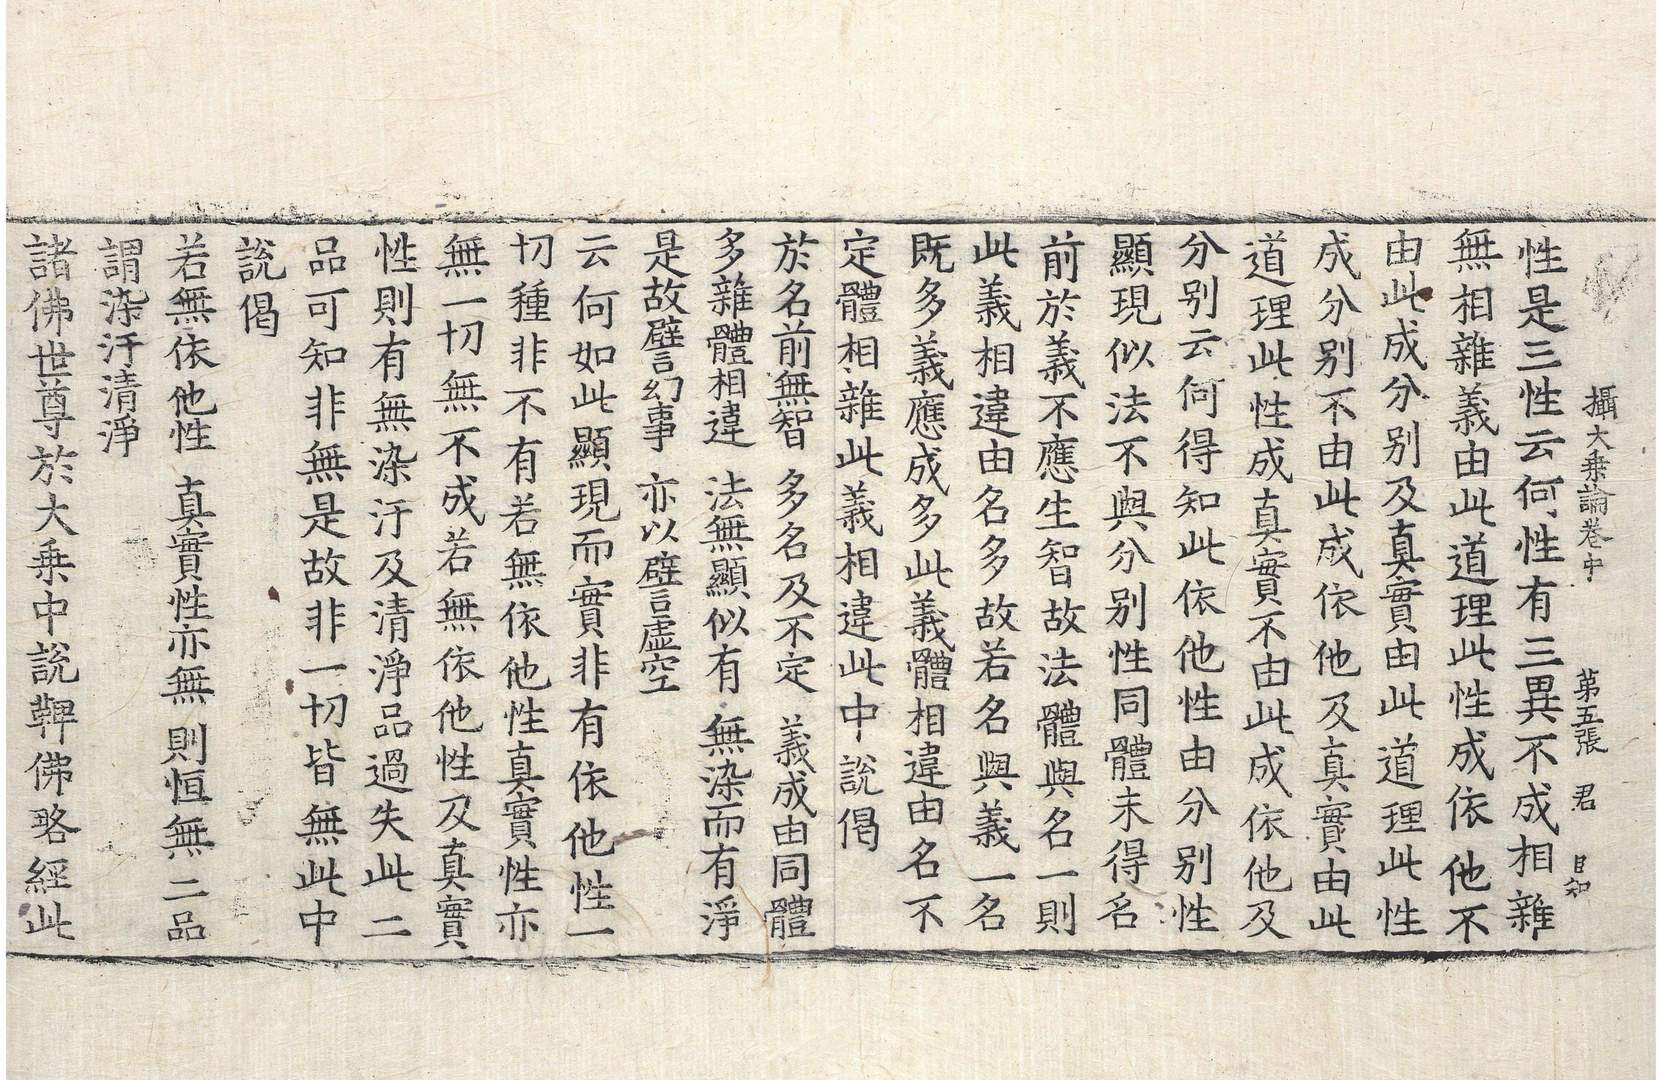 攝大乘論卷中 第五張 君 目知
性是三性云何性有三異不成相雜
無相雜義由此道理此性成依他不
由此成分別及真實由此道理此性
成分別不由此成依他及真實由此
道理此性成真實不由此成依他及
分別云何得知此依他性由分別性
顯現似法不與分別性同體未得名
前於義不應生智故法體與名一則
此義相違由名多故若名與義一名
既多義應成多此義體相違由名不
定體相雜此義相違此中說偈
於名前無智 多名及不定 義成由同體
多雜體相違 法無顯似有 無染而有淨
是故譬幻事 亦以譬虛空
云何如此顯現而實非有依他性一
切種非不有若無依他性真實性亦
無一切無不成若無依他性及真實
性則有無染汙及清淨品過失此二
品可知非無是故非一切皆無此中
說偈
若無依他性 真實性亦無 則恒無二品
謂染汙清淨
諸佛世尊於大乘中說鞞佛略經此